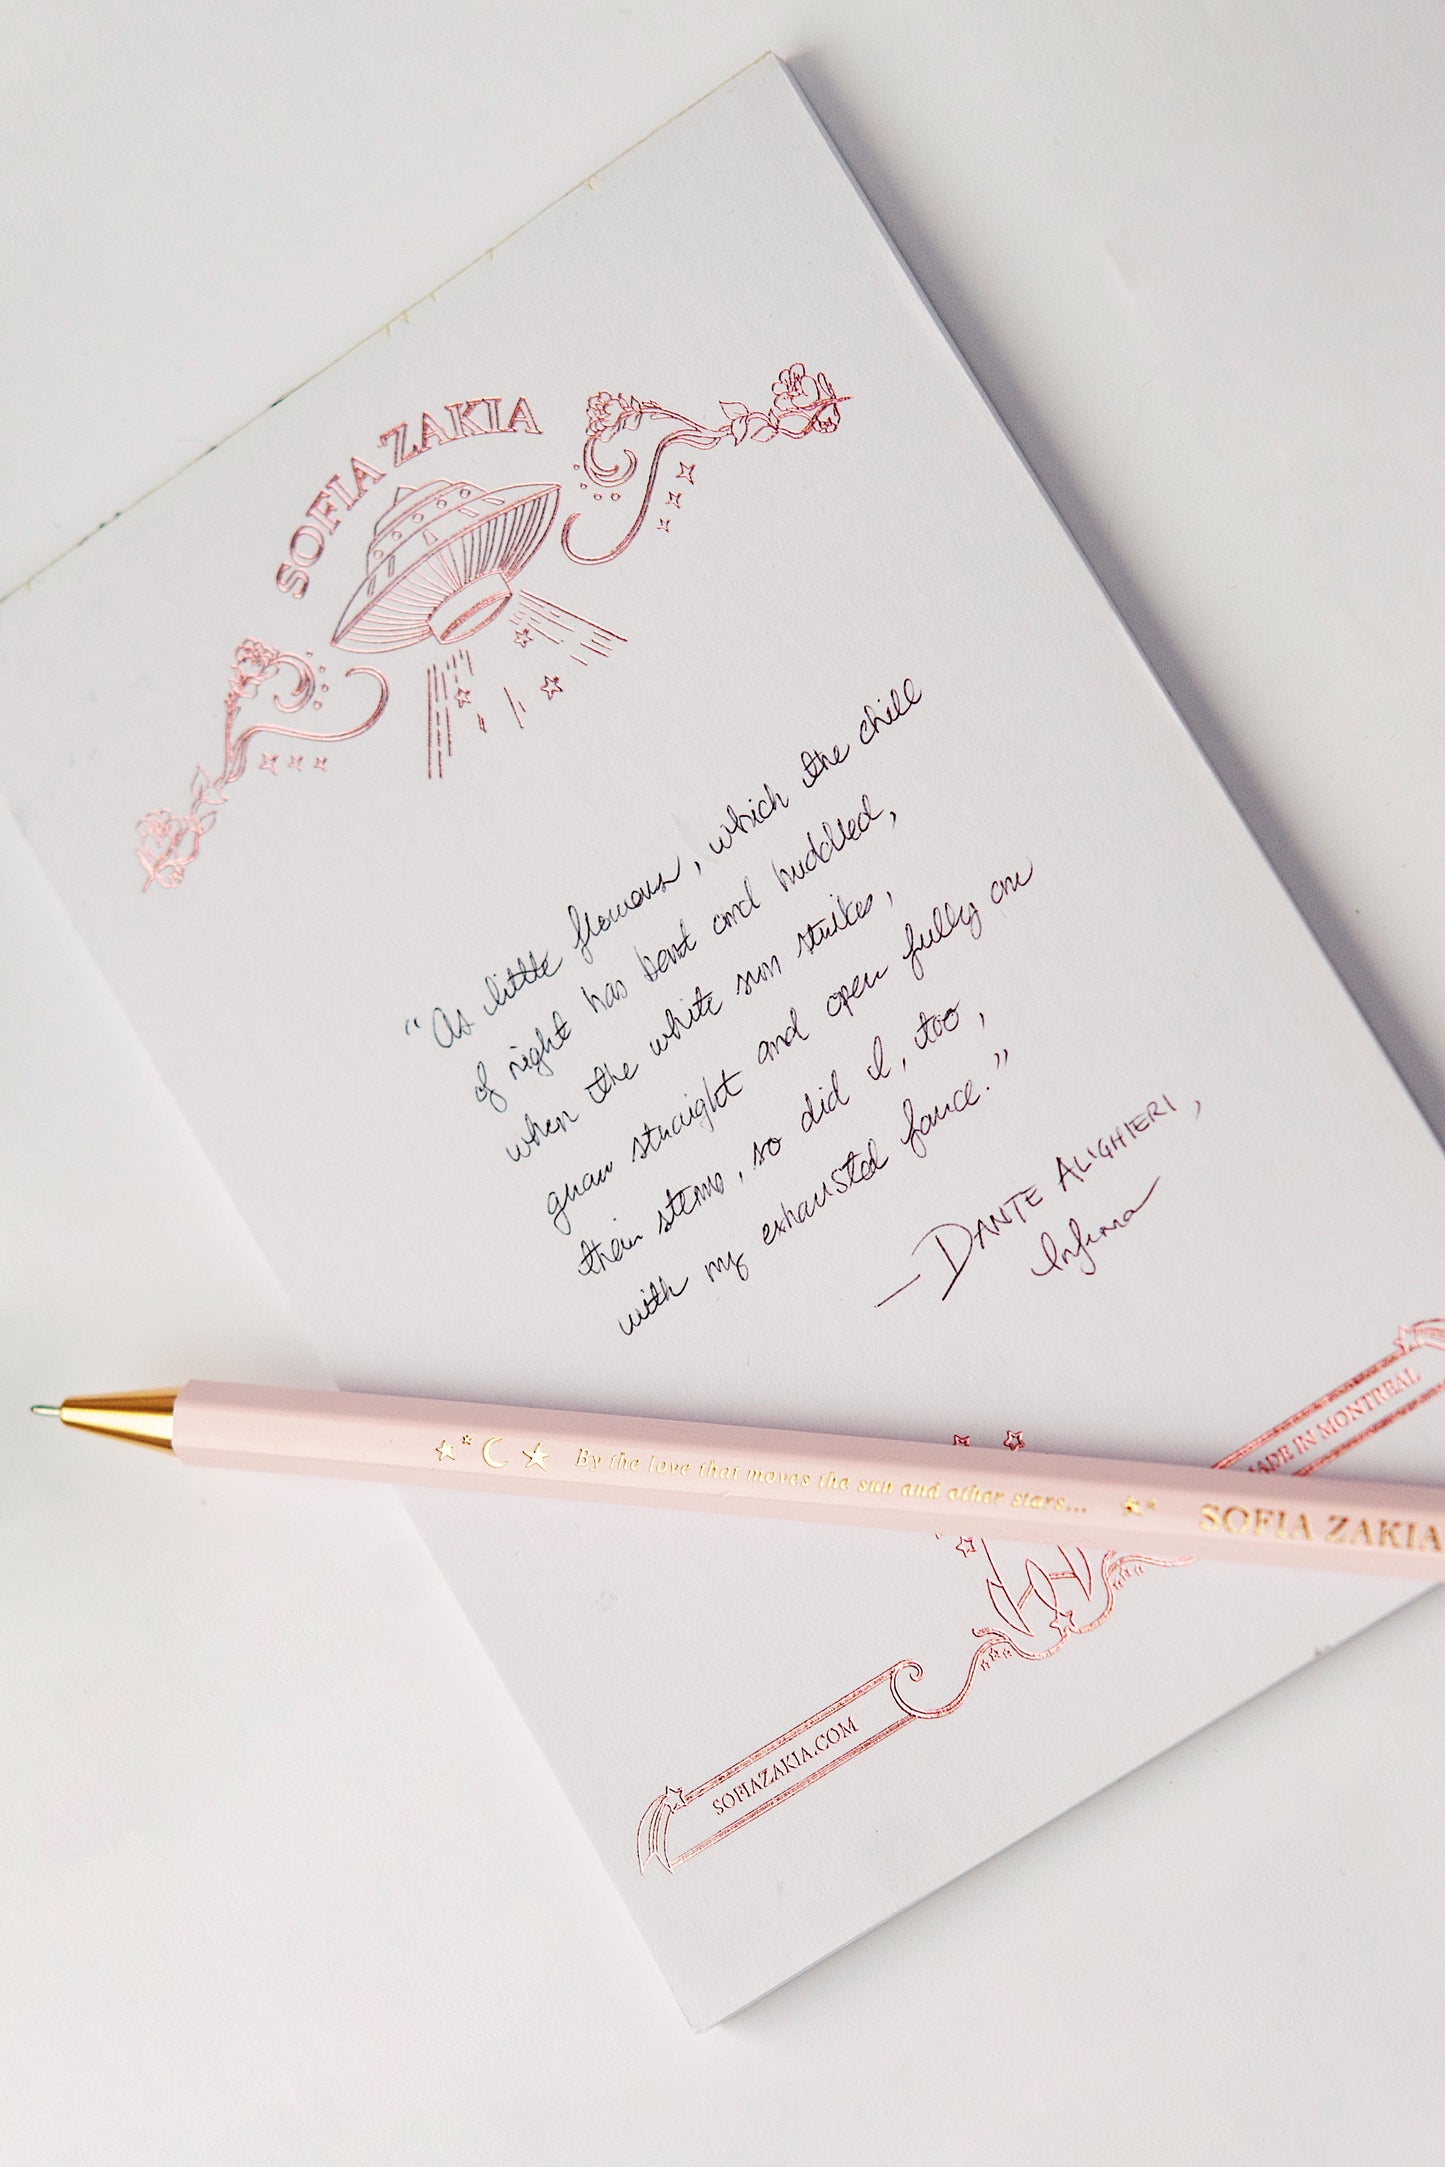 SOFIA ZAKIA
“As little flowers, which the chill
of night has bent and huddled,
when the white sun strikes,
grow straight and open fully on
their stems, so did I, too,
with my exhausted force.”
— DANTE ALIGHIERI,
Inferno
MADE IN MONTREAL
By the love that moves the sun and other stars...
SOFIA ZAKIA
SOFIAZAKIA.COM